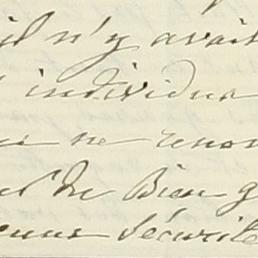 il n'y avait
individua
ne renon
de Bien g
sécurité